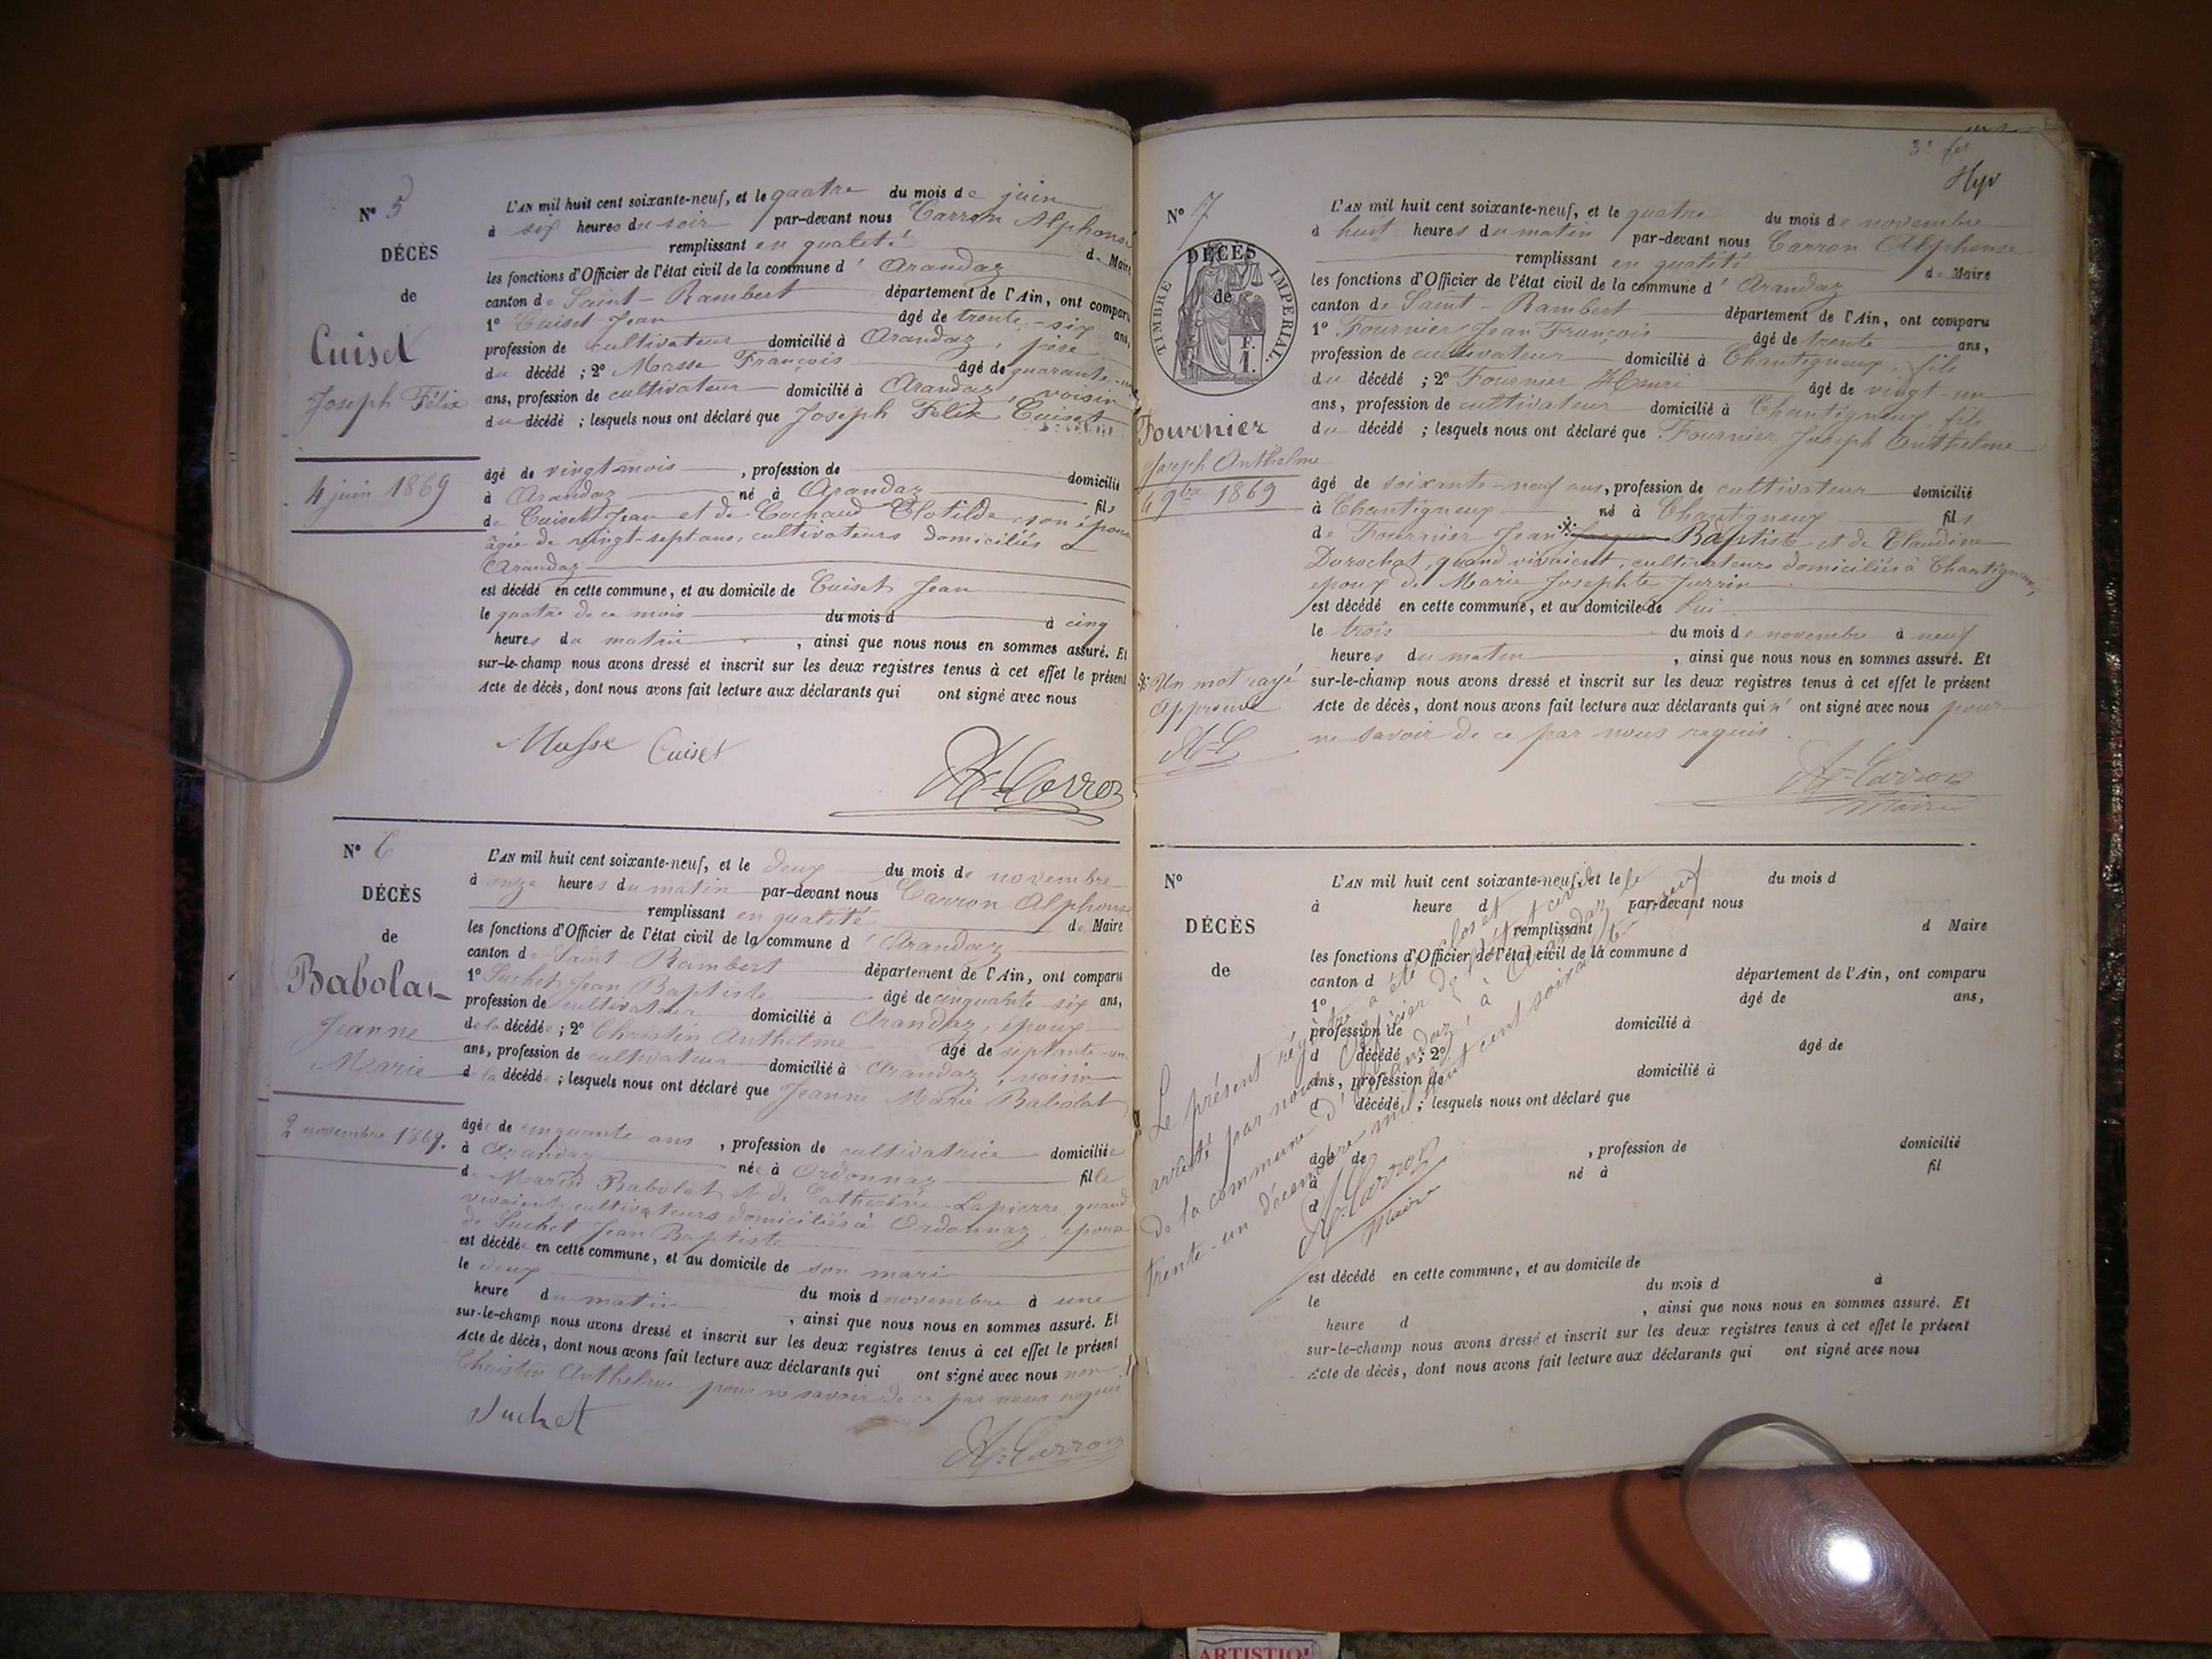 N° 5
DÉCÈS
de
Cuiset
Joseph Félix
4 juin 1869
L'AN mil huit cent soixante-neuf, et le quatre du mois de juin
à six heures du soir par-devant nous Carron Alphonse
remplissant en qualité de Maire
les fonctions d'Officier de l'état civil de la commune d'Arandaz
canton de Saint-Rambert département de l'Ain, ont comparu
1° Cuiset Jean âgé de trente-six ans,
profession de cultivateur domicilié à Arandaz, père
du décédé ; 2° Masse François âgé de quarante-un
ans, profession de cultivateur domicilié à Arandaz, voisin
du décédé ; lesquels nous ont déclaré que Joseph Félix Cuiset
âgé de vingt mois, profession de domicilié
à Arandaz né à Arandaz fils
de Cuiset Jean et de Cochaud Clotilde son épouse
âgée de vingt-sept ans, cultivateurs domiciliés à
Arandaz
est décédé en cette commune, et au domicile de Cuiset Jean
le quatre de ce mois du mois d à cinq
heures du matin, ainsi que nous nous en sommes assuré. Et
sur-le-champ nous avons dressé et inscrit sur les deux registres tenus à cet effet le présent
Acte de décès, dont nous avons fait lecture aux déclarants qui ont signé avec nous
Masse Cuiset
Al-Carron
N° 6
DÉCÈS
de
Babolat
Jeanne
Marie
2 novembre 1869.
L'AN mil huit cent soixante-neuf, et le deux du mois de novembre
à onze heures du matin par-devant nous Carron Alphonse
remplissant en qualité de Maire
les fonctions d'Officier de l'état civil de la commune d'Arandaz
canton de Saint Rambert département de l'Ain, ont comparu
1° Suchet Jean Baptiste âgé de cinquante-six ans,
profession de cultivateur domicilié à Arandaz, époux
de la décédée ; 2° Christin Anthelme âgé de septante-un
ans, profession de cultivateur domicilié à Arandaz, voisin
de la décédée ; lesquels nous ont déclaré que Jeanne Marie Babolat
âgée de cinquante ans, profession de cultivatrice domiciliée
à Arandaz née à Ordonnaz fille
de Marin Babolat et de Catherine Lapierre, quand
vivaient cultivateurs domiciliés à Ordonnaz, épouse
de Suchet Jean Baptiste
est décédée en cette commune, et au domicile de son mari
le deux du mois de novembre à une
heure du matin, ainsi que nous nous en sommes assuré. Et
sur-le-champ nous avons dressé et inscrit sur les deux registres tenus à cet effet le présent
Acte de décès, dont nous avons fait lecture aux déclarants qui ont signé avec nous non
Christin Anthelme pour ne savoir de ce par nous requis
Suchet
Al-Carron
3e fet
Hyv
N° 7
DÉCÈS
de
TIMBRE IMPERIAL.
F.
1.
Fournier
Joseph Anthelme
4 9bre 1869
L'AN mil huit cent soixante-neuf, et le quatre du mois de novembre
à huit heures du matin par-devant nous Carron Alphonse
remplissant en qualité de Maire
les fonctions d'Officier de l'état civil de la commune d'Arandaz
canton de Saint-Rambert département de l'Ain, ont comparu
1° Fournier Jean François âgé de trente ans,
profession de cultivateur domicilié à Chantigneux, fils
du décédé ; 2° Fournier Henri âgé de vingt-un
ans, profession de cultivateur domicilié à Chantigneux, fils
du décédé ; lesquels nous ont déclaré que Fournier Joseph Anthelme
âgé de soixante-neuf ans, profession de cultivateur domicilié
à Chantigneux né à Chantigneux fils
de Fournier Jean * Baptiste et de Claudine
Durochat, quand vivaient, cultivateurs domiciliés à Chantigneux,
époux de Marie Josephte Jurrin
est décédé en cette commune, et au domicile de lui
le trois du mois de novembre à neuf
heures du matin, ainsi que nous nous en sommes assuré. Et
sur-le-champ nous avons dressé et inscrit sur les deux registres tenus à cet effet le présent
Acte de décès, dont nous avons fait lecture aux déclarants qui n'ont signé avec nous pour
ne savoir de ce par nous requis.
* Un mot rayé
Approuvé
Al-C
Al-Carron
Maire
N°
DÉCÈS
de
L'AN mil huit cent soixante-neuf, et le du mois d
à heure d par-devant nous
remplissant d Maire
les fonctions d'Officier de l'état civil de la commune d
canton d département de l'Ain, ont comparu
1° âgé de ans,
profession de domicilié à
d décédé ; 2° âgé de
ans, profession de domicilié à
d décédé ; lesquels nous ont déclaré que
âgé de , profession de domicilié
à né à fil
d
est décédé en cette commune, et au domicile de
le du mois d à
heure d , ainsi que nous nous en sommes assuré. Et
sur-le-champ nous avons dressé et inscrit sur les deux registres tenus à cet effet le présent
Acte de décès, dont nous avons fait lecture aux déclarants qui ont signé avec nous
Le présent régistre a été clos et
arrêté par nous Officier de l'état civil
de la commune d'Arandaz, à Arandaz le
trente-un décembre mil huit cent soixante-neuf
Al-Carron
Maire
ARTISTIQ